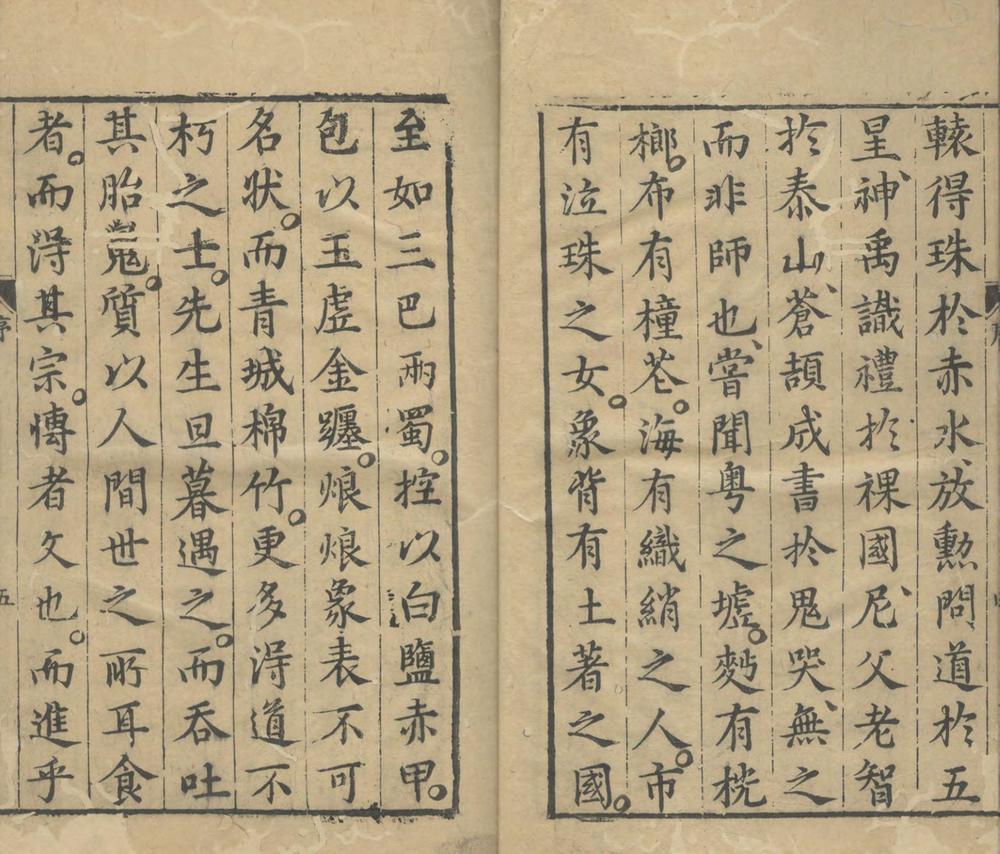 轅得珠於赤水、放勳問道於五
星、神禹識禮扵裸國、尼父老智
扵泰山、蒼頡成書扵鬼哭、無之
而非師也、嘗聞粤之墟。麫有桄
榔。布有橦苍。海有織綃之人。市
有泣珠之女。象背有土著之國。
至如三巴兩蜀。控以白鹽赤甲。
包以玉虗金纏。烺烺象表不可
名狀。而青城棉竹。更多淂道不
朽之士。先生旦暮遇之。而吞吐
其胎䰟。質以人間世之所耳食
者。而淂其宗。慱者文也。而進乎
序
五